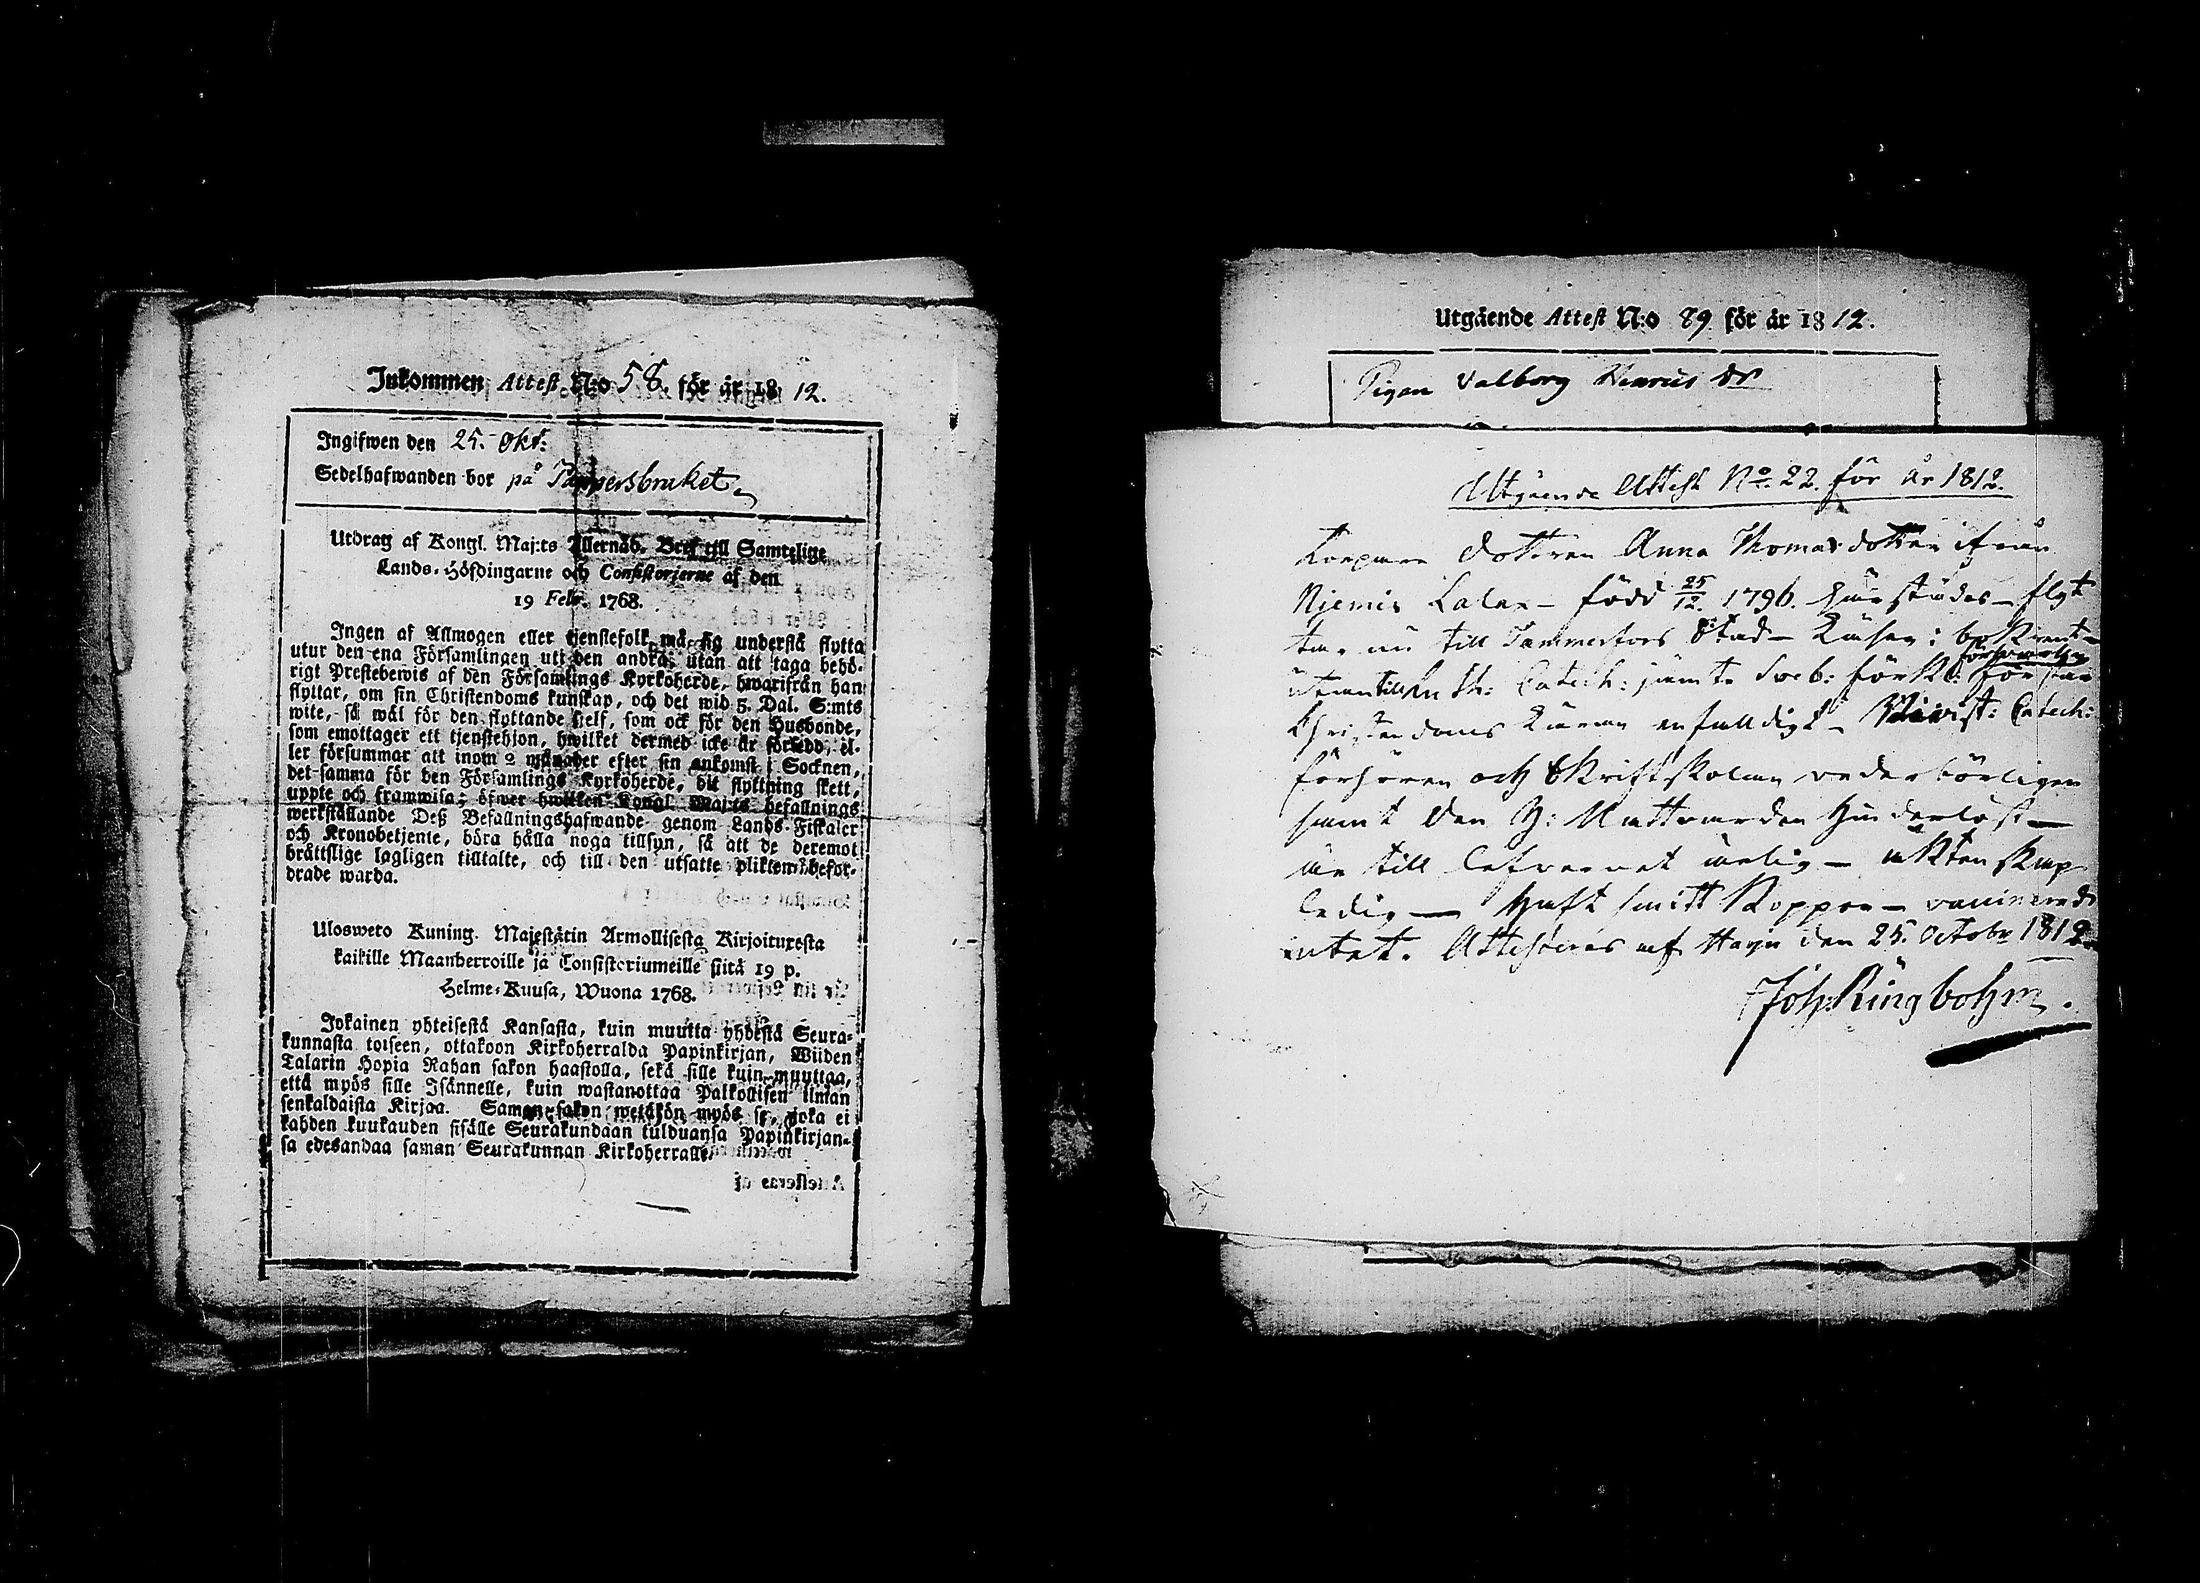 Inkommen Attest N:o 58. för år 18 12.
Ingifwen den 25. Okt:
Sedelhafwanden bor på Pappersbruket
Utdrag af Kongl. Maj:ts Allernåd. Bref till Samtelige
Lands-Höfdingarne och Consistorierne af den
19 Febr. 1768.
Ingen af Allmogen eller tjenstefolk må sig understå flytta
utur den ena Församlingen uti den andra, utan att taga behö-
rigt Prestebewis af den Församlings Kyrkoherde, hwarifrån han
flyttar, om sin Christendoms kunskap, och det wid 5. Dal. S:mts
wite, så wäl för den flyttande sielf, som ock för den Husbonde,
som emottager ett tjenstehjon, hwilket dermed icke är försedd, el-
ler försummar att inom 2 månader efter sin ankomst i Socknen,
det samma för den Församlings Kyrkoherde, dit flyttning skett,
uppte och framwisa; öfwer hwilken Kongl. Maj:ts befallnings
werkställande Deß Befallningshafwande genom Lands-Fiskaler
och Kronobetjente, böra hålla noga tillsyn, så att de deremot
bråttslige lagligen tilltalte, och till den utsatte plikten befor-
drade warda.
Ulosweto Kuning. Majestätin Armollisesta Kirjoituxesta
kaikille Maanherroille ja Consistoriumeille siitä 19 p.
Helme-Kuusa, Wuona 1768.
Jokainen yhteisestä Kansasta, kuin muutta yhdestä Seura-
kunnasta toiseen, ottakoon Kirkoherralda Papinkirjan, Wiiden
Talarin Hopia Rahan sakon haastolla, sekä sille kuin muuttaa,
että myös sille Isännelle, kuin wastanottaa Palkollisen ilman
senkaldaista Kirjaa. Saman sakon wetäkön myös se, joka ei
kahden kuukauden sisälle Seurakundaan tulduansa Papinkirjan-
sa edesandaa saman Seurakunnan Kirkoherralle.
Attesteras af
Utgående Attest N:o 89 för år 18 12.
Pigan Valborg Henrics dr
Utgående Attest No. 22. för år 1812.
Torpare dottren Anna Thomasdotter ifrån
Njemis Lalax - född 25/12. 1796. härstädes - flyt
tar nu till Tammerfors Stad - Läser: bokrent -
utantill Luth: Catech: jämte Sveb: förkl: försvarlig förstår
Christendoms Läran enfalldigt - Bevist: Catech:
förhören och Skriftskolan vederbörligen
samt den H: Nattvarden hinderlöst -
är till lefvernet ärlig - äktenskap
ledig - haft smitt Koppor - vaccinerad
intet. Attesteras af Harju den 25. Octobr 1812.
Joh: Ringbohm.